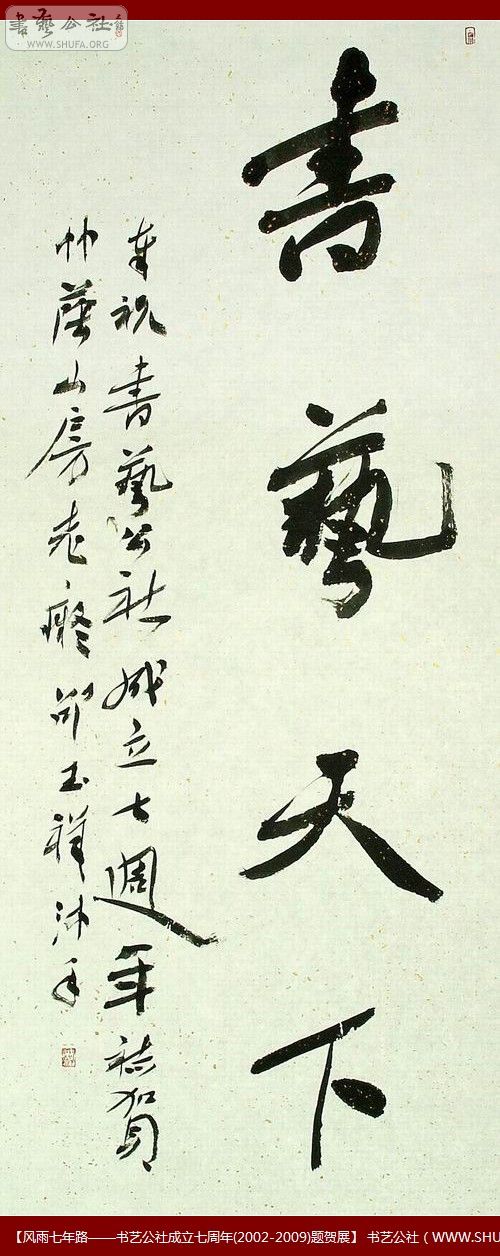 書藝公社
WWW.SHUFA.ORG
書藝天下
奉祝書藝公社成立七週年誌賀
竹蔭山房老癡 玉祥沐手
【风雨七年路——书艺公社成立七周年(2002-2009)题贺展】 书艺公社（WWW.SHU